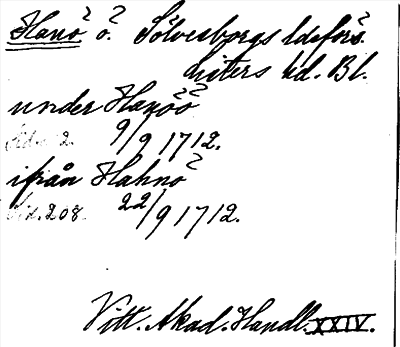 Hanö ö. Sölvesborgs ldsförs.
Listers hd. Bl.
under Hanöö
Sid. 2. 9/9 1712.
ifrån Hahnö
Sid. 208. 22/9 1712.
Vitt. Akad. Handl. XXIV.